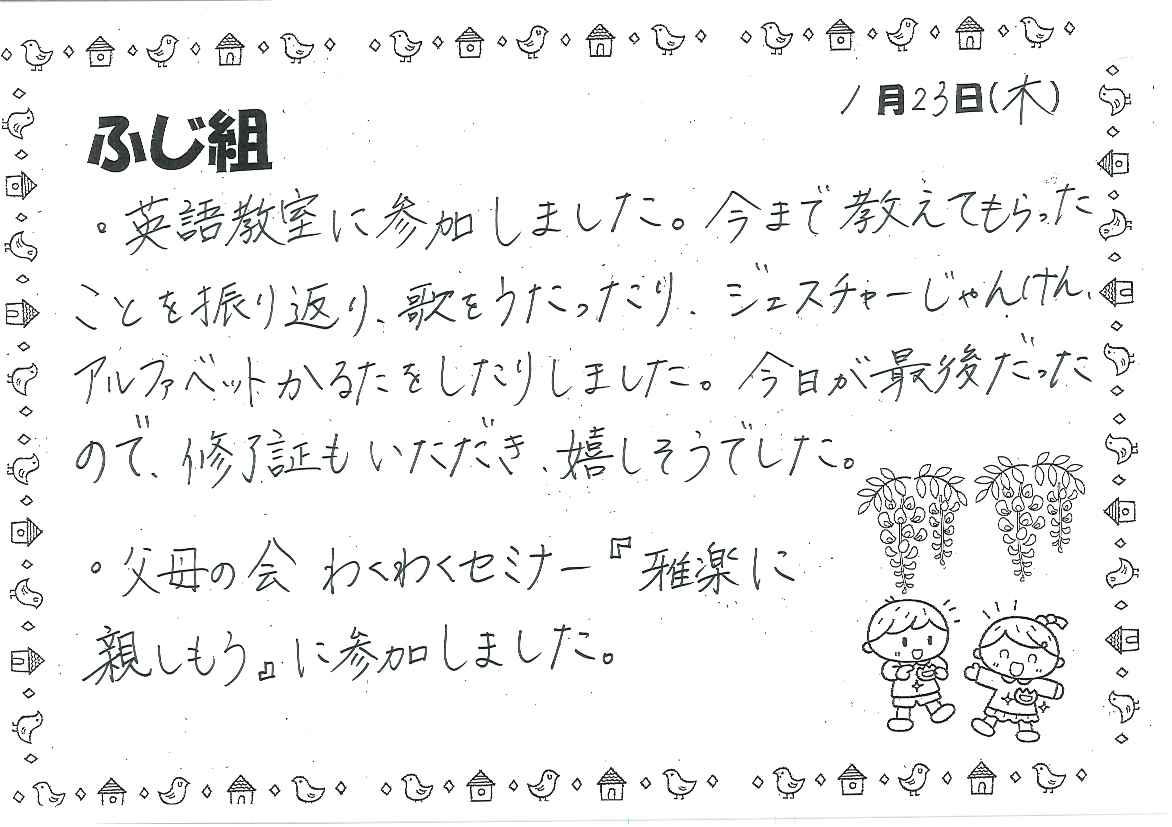 1月23日(木)
ふじ組
・英語教室に参加しました。今まで教えてもらった
ことを振り返り、歌をうたったり、ジェスチャーじゃんけん、
アルファベットかるたをしたりしました。今日が最後だった
ので、修了証もいただき、嬉しそうでした。
・父母の会 わくわくセミナー『雅楽に
親しもう』に参加しました。